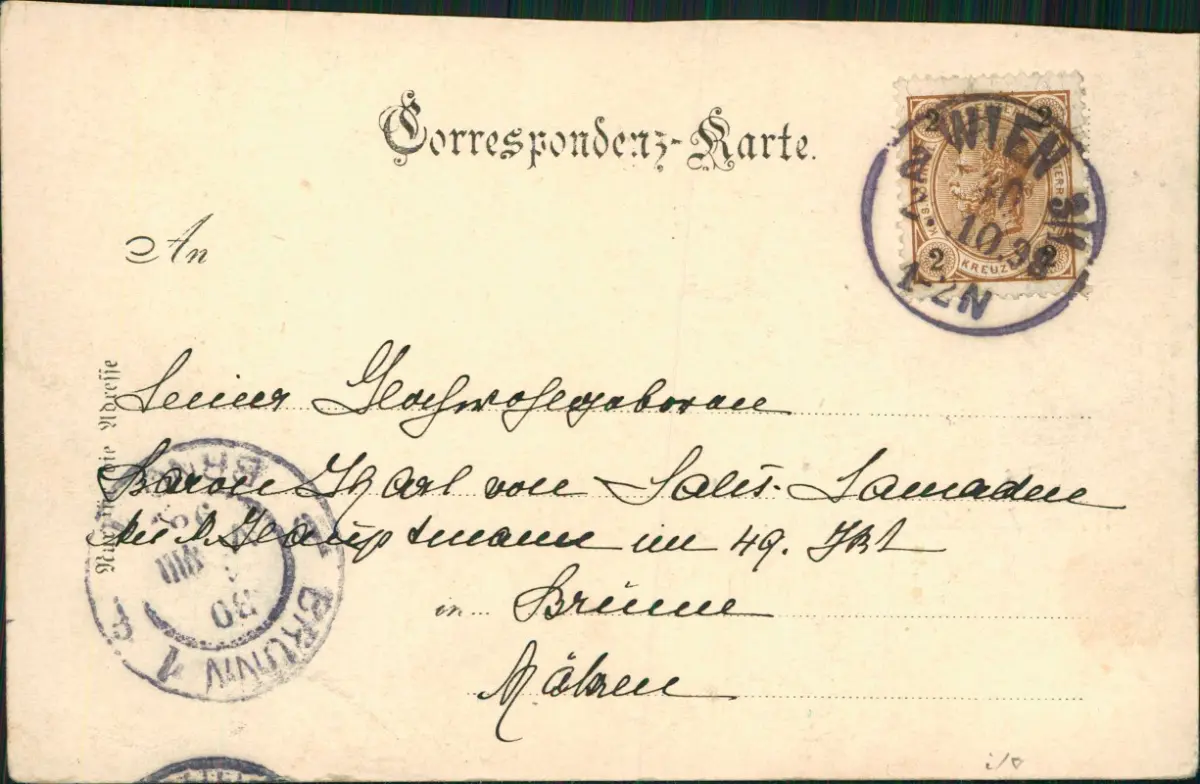 Correspondenz-Karte.
WIEN
3/1
10.98
1-2N
2 2
KREUZER
2 2
An
Seiner Hochwohlgeboren
Baron Karl von Salis-Samaden
k.u.k. Hauptmann im 49. IRt
in Brünn
Mähren
Nur für die Adresse
BRÜNN 1
BRNO
VIII